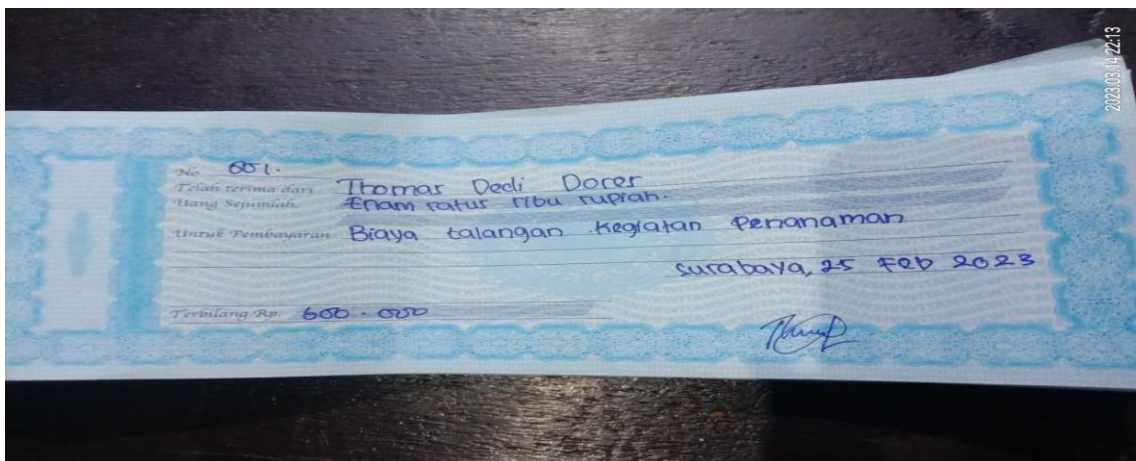 2023.03.14 22:13
No 601.
Telah terima dari Thomas Dedi Dores
Uang Sejumlah Enam ratus ribu rupiah.
Untuk Pembayaran Biaya talangan kegiatan Penanaman
Surabaya, 25 Feb 2023
Terbilang Rp. 600.000